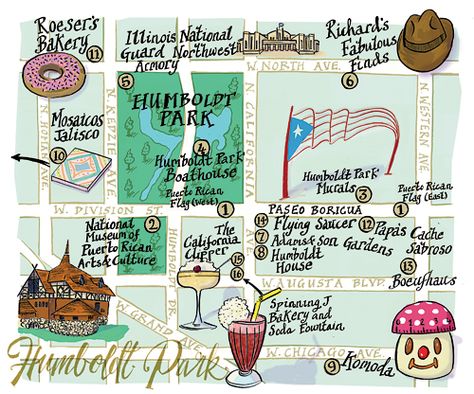 Roeser's
Bakery
11
Illinois National
Guard Northwest
Armory
5
Richard's
Fabulous
Finds
6
W. NORTH AVE.
N. HOMAN AVE.
N. KEDZIE AVE.
N. CALIFORNIA
N. WESTERN AVE.
HUMBOLDT
PARK
4
Humboldt Park
Boathouse
Puerto Rican
Flag (West)
1
Mosaicos
Jalisco
10
Humboldt Park
Murals 3
1
Puerto Rican
Flag (East)
W. DIVISION ST.
PASEO BORICUA
National 2
Museum of
Puerto Rican
Arts & Culture
HUMBOLDT DR.
The
California
Clipper
15
16
14 Flying Saucer
7 Adams & Son Gardens
8 Humboldt
House
12 Papa's Cache
Sabroso
13
Boeufhaus
W. AUGUSTA BLVD.
Spinning J
Bakery and
Soda Fountain
W. GRAND AVE.
W. CHICAGO AVE.
9 Komoda
Humboldt Park